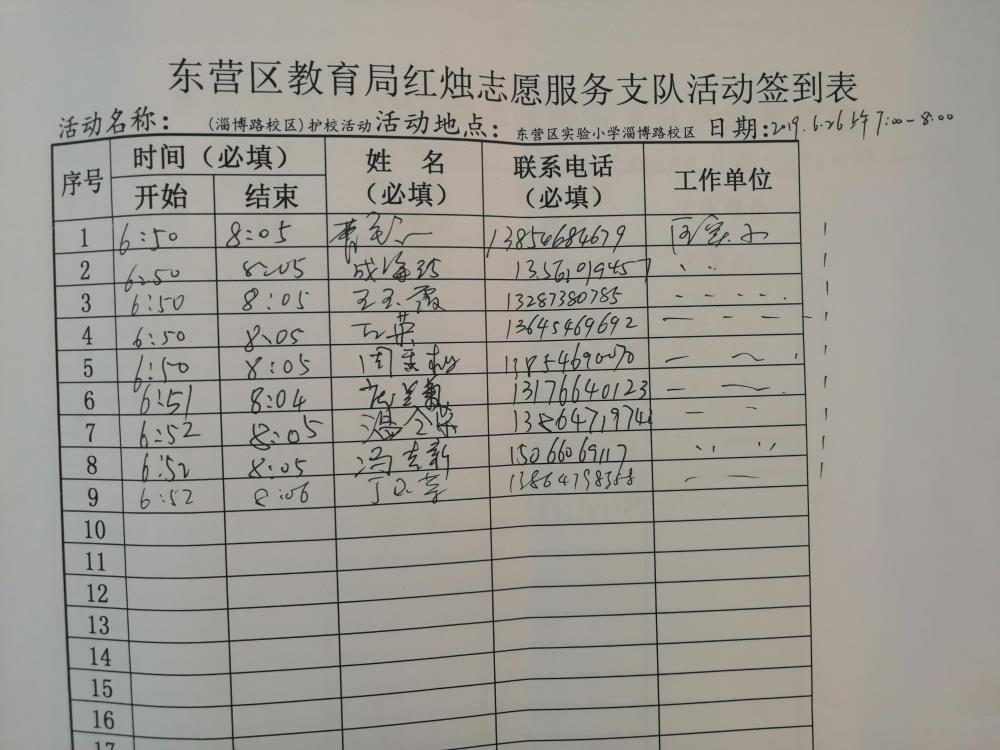 东营区教育局红烛志愿服务支队活动签到表
活动名称：（淄博路校区）护校活动 活动地点：东营区实验小学淄博路校区 日期：2019.6.26 上午7:00-8:00
序号 时间（必填） 姓 名（必填） 联系电话（必填） 工作单位
开始 结束
1 6:50 8:05 13854684679
2 6:50 8:05 13561019457
3 6:50 8:05 王玉霞 13287380785
4 6:50 8:05 13645469692
5 6:50 8:05 13854690070
6 6:51 8:04 13176640123
7 6:52 8:05
8 6:52 8:05 冯志新 15066069117
9 6:52 8:06
10
11
12
13
14
15
16
17